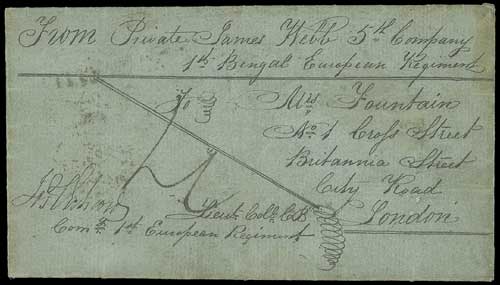 From Private James Webb 5th Company
1st Bengal European Regiment
To Mrs Fountain
No 1 Cross Street
Britannia Street
City Road
London
Lieut. Coll. C.B.
Comg 1st European Regiment